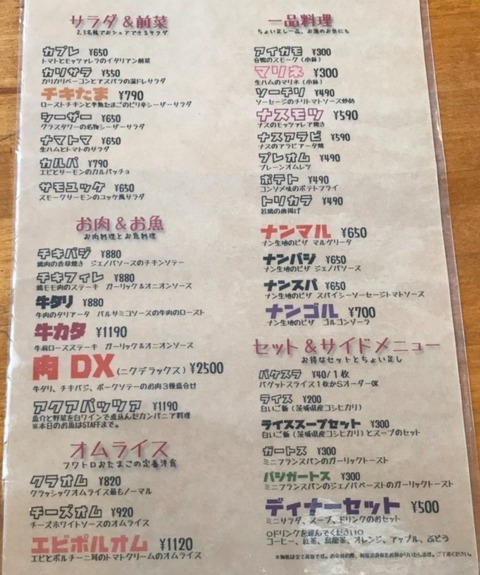 サラダ＆前菜
2、3名様でおシェアできるサラダ
カプレ ¥650
トマトとモッツァレラのイタリアン前菜
カリサラ ¥550
カリカリベーコンとアスパラの温ドレサラダ
チキたま ¥790
ローストチキンと半熟たまごのピリ辛シーザーサラダ
シーザー ¥650
グラスタワーの名物シーザーサラダ
ナマトマ ¥650
生ハムとトマトのサラダ
カルパ ¥790
エビとサーモンのカルパッチョ
サモユッケ ¥650
スモークサーモンのユッケ風サラダ
お肉＆お魚
お肉料理とお魚料理
チキバジ ¥880
鶏肉の香草焼き ジェノバソースのチキンソテー
チキフィレ ¥880
鶏モモ肉のステーキ ガーリック&オニオンソース
牛タリ ¥880
牛肉のタリアータ バルサミコソースの牛肉のロースト
牛カタ ¥1190
牛肩ロースステーキ ガーリック&オニオンソース
肉DX(ニクデラックス) ¥2500
牛タリ、チキバジ、ポークソテーのお肉3種盛合せ
アクアパッツァ ¥1190
魚介と野菜を白ワインで煮込んだカンパニア料理
※本日のお魚はSTAFFまで。
オムライス
フワトロおたまごの定番洋食
クラオム ¥820
クラッシックオムライス最もノーマル
チーズオム ¥920
チーズホワイトソースのオムライス
エビポルオム ¥1120
エビとポルチーニ茸のトマトクリームのオムライス
一品料理
ちょい足し一品、お酒のお供にも
アイガモ ¥300
合鴨のスモーク(小鉢)
マリネ ¥300
生ハムのマリネ(小鉢)
ソーチリ ¥490
ソーセージのチリトマトソース炒め
ナスモツ ¥590
ナスのモッツァレア焼き
ナスアラビ ¥590
ナスのアラビアータ焼
プレオム ¥490
プレーンオムレツ
ポテト ¥490
コンソメ味のポテトフライ
トリカラ ¥490
若鶏の唐揚げ
ナンマル ¥650
ナン生地のピザ マルゲリータ
ナンバジ ¥650
ナン生地のピザ ジェノバソース
ナンスパ ¥650
ナン生地のピザ スパイシーソーセージトマトソース
ナンゴル ¥700
ナン生地のピザ ゴルゴンゾーラ
セット＆サイドメニュー
お得なセットとちょい足し
バケスラ ¥40/1枚
バゲットスライス1枚からオーダーOK
ライス ¥200
白いご飯(茨城県産コシヒカリ)
ライススープセット ¥300
白いご飯(茨城県産コシヒカリ)とスープのセット
ガートス ¥300
ミニフランスパンのガーリックトースト
バジガートス ¥300
ミニフランスパンのジェノバペーストのガーリックトースト
ディナーセット ¥500
ミニサラダ、スープ、ドリンクのおセット
○ドリンクを選んでください○
コーヒー、紅茶、烏龍茶、オレンジ、アップル、ぶどう